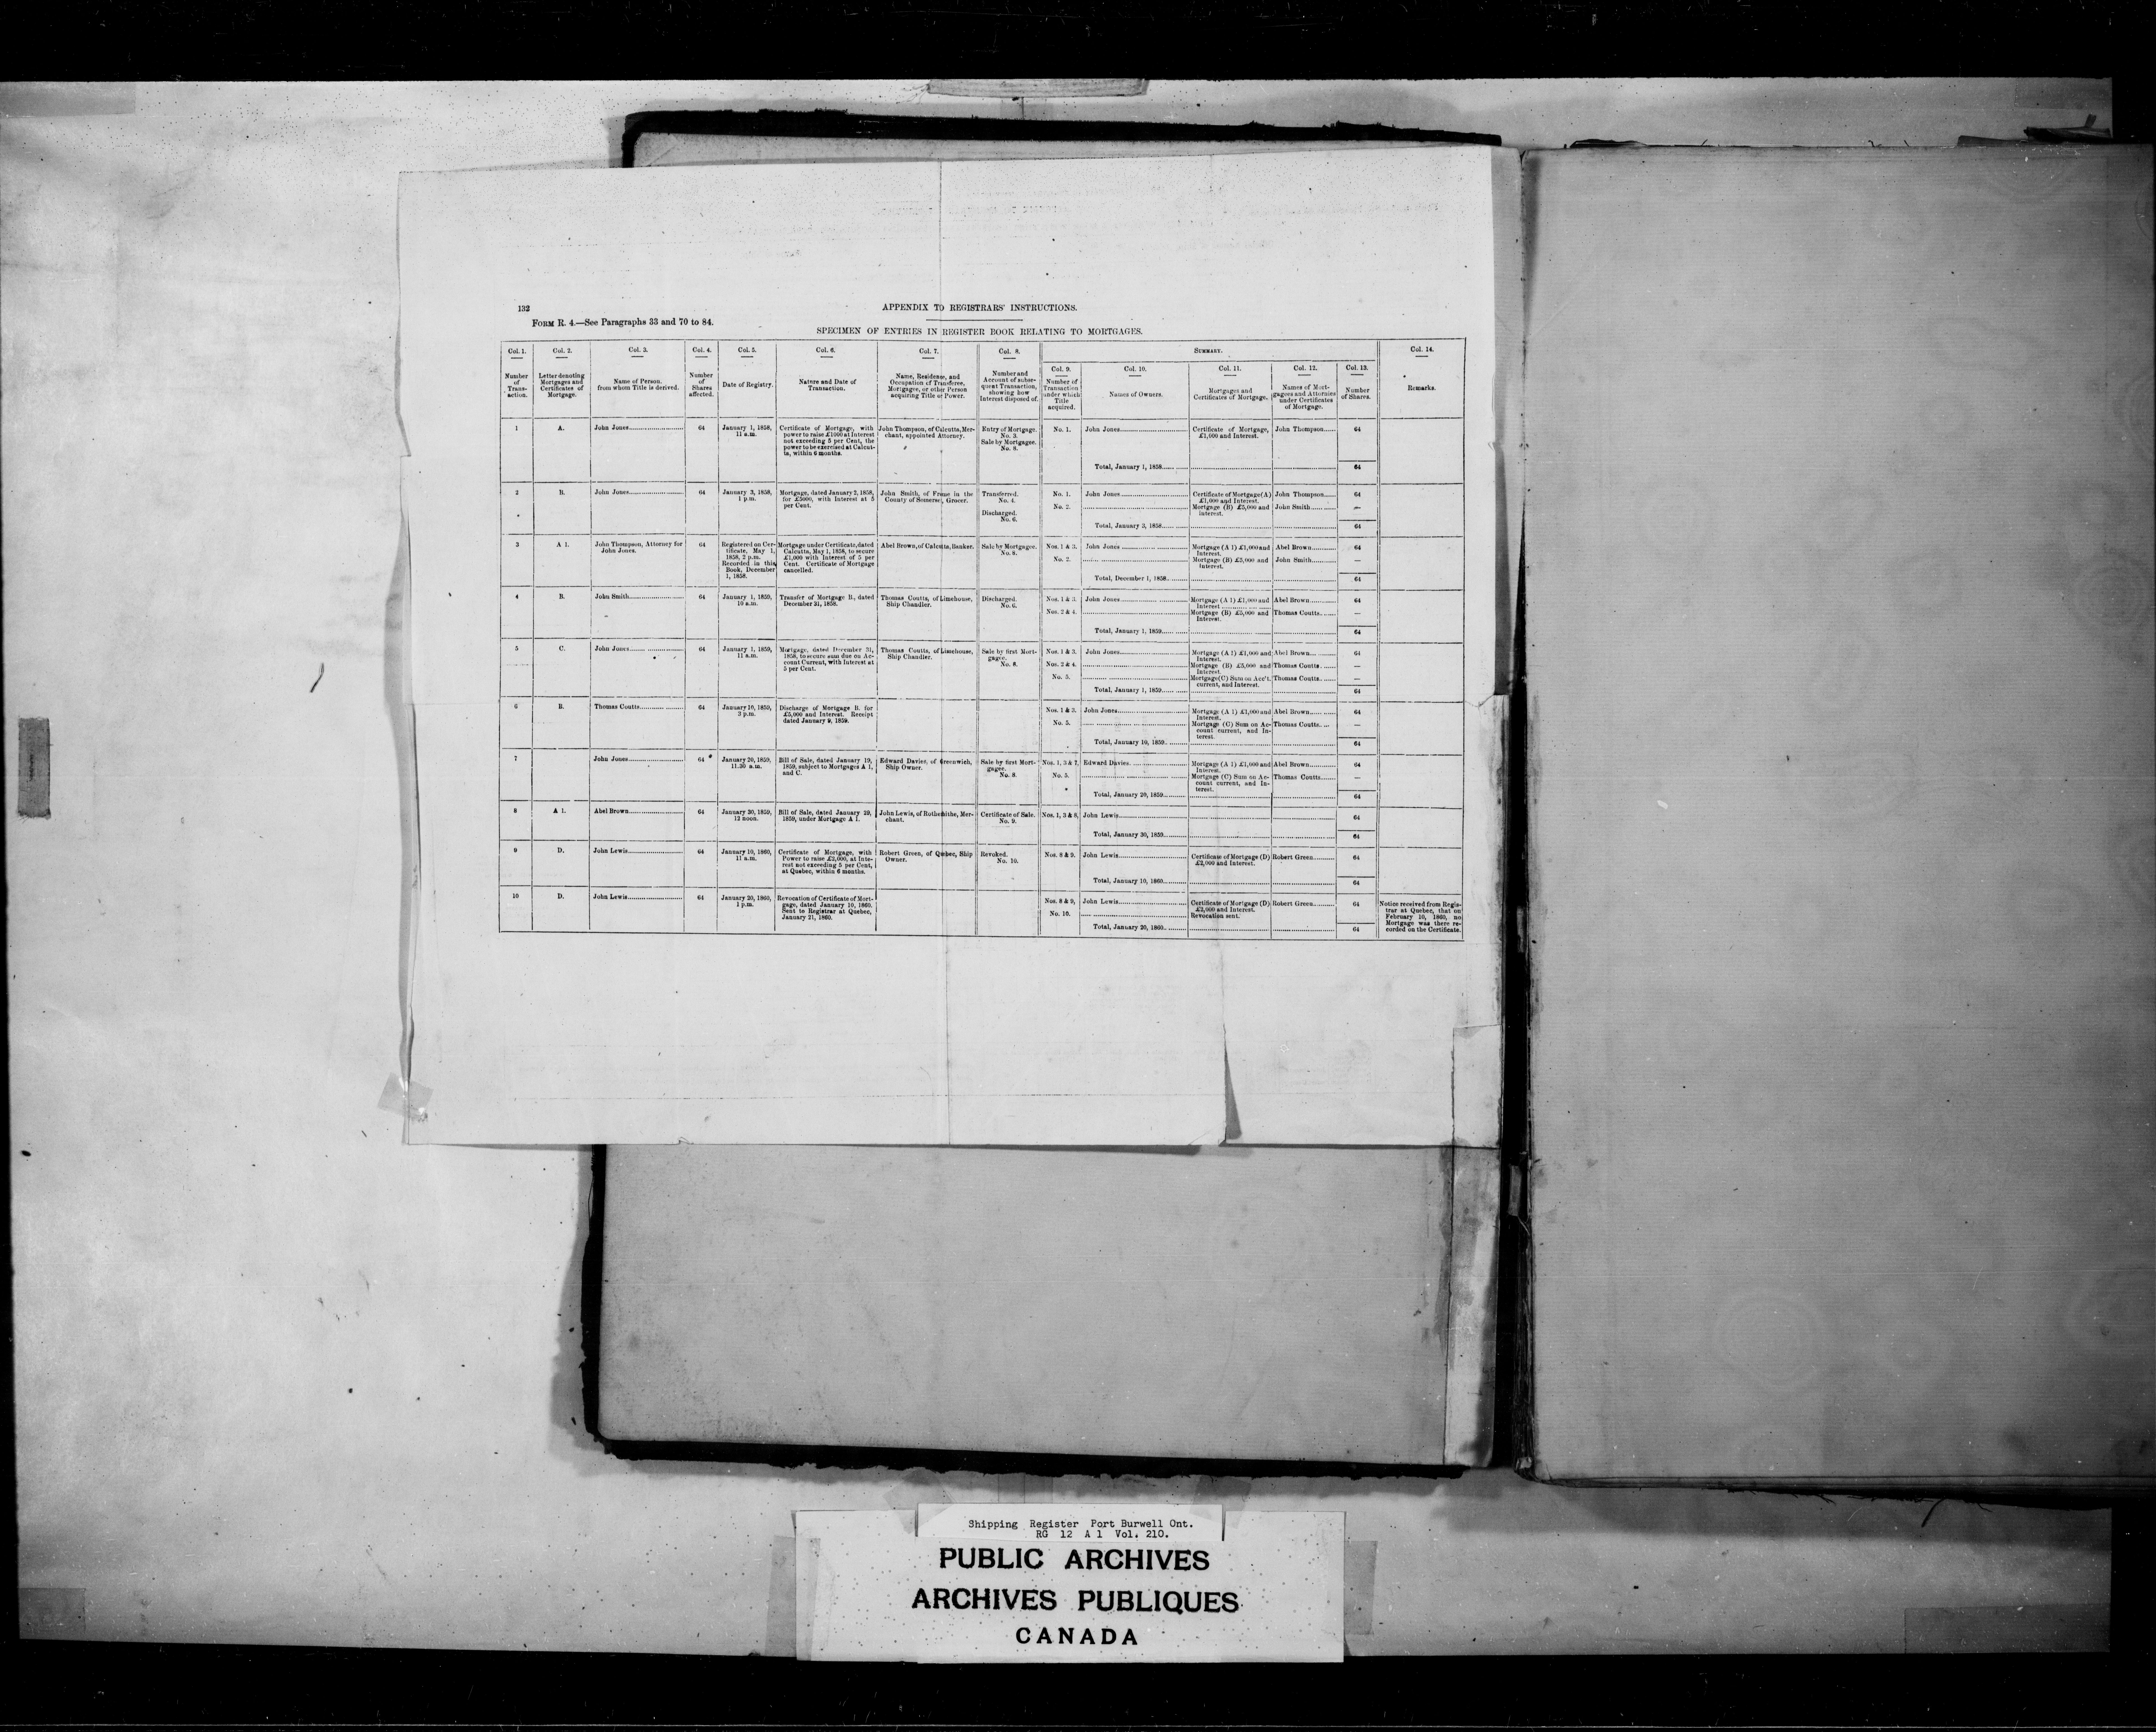 132
APPENDIX TO REGISTRARS' INSTRUCTIONS.
FORM R. 4.—See Paragraphs 33 and 70 to 84.
SPECIMEN OF ENTRIES IN REGISTER BOOK RELATING TO MORTGAGES.
Col. 1.
Number
of
Trans-
action.
Col. 2.
Letter denoting
Mortgages and
Certificates of
Mortgage.
Col. 3.
Name of Person.
from whom Title is derived.
Col. 4.
Number
of
Shares
affected.
Col. 5.
Date of Registry.
Col. 6.
Nature and Date of
Transaction.
Col. 7.
Name, Residence, and
Occupation of Transferee,
Mortgagee, or other Person
acquiring Title or Power.
Col. 8.
Number and
Account of subse-
quent Transaction,
showing how
Interest disposed of.
SUMMARY.
Col. 9.
Number of
Transaction
under which
Title
acquired.
Col. 10.
Names of Owners.
Col. 11.
Mortgages and
Certificates of Mortgage.
Col. 12.
Names of Mort-
gagees and Attornies
under Certificates
of Mortgage.
Col. 13.
Number
of Shares.
Col. 14.
Remarks.
1
A.
John Jones
64
January 1, 1858,
11 a.m.
Certificate of Mortgage, with
power to raise £1000 at Interest
not exceeding 5 per Cent, the
power to be exercised at Calcut-
ta, within 6 months.
John Thompson, of Calcutta, Mer-
chant, appointed Attorney.
Entry of Mortgage.
No. 3.
Sale by Mortgagee.
No. 8.
No. 1.
John Jones
Certificate of Mortgage,
£1,000 and Interest.
John Thompson
64
Total, January 1, 1858
64
2
B.
John Jones
64
January 3, 1858,
1 p.m.
Mortgage, dated January 2, 1858,
for £5000, with Interest at 5
per Cent.
John Smith, of Frome in the
County of Somerset, Grocer.
Transferred.
No. 4.
Discharged.
No. 6.
No. 1.
John Jones
Certificate of Mortgage (A)
£1,000 and Interest.
John Thompson
64
No. 2.
Mortgage (B) £5,000 and
interest.
John Smith
—
Total, January 3, 1858
64
3
A 1.
John Thompson, Attorney for
John Jones.
64
Registered on Cer-
tificate, May 1,
1858, 2 p.m.
Recorded in this
Book, December
1, 1858.
Mortgage under Certificate, dated
Calcutta, May 1, 1858, to secure
£1,000 with Interest of 5 per
Cent. Certificate of Mortgage
cancelled.
Abel Brown, of Calcutta, Banker.
Sale by Mortgagee.
No. 8.
Nos. 1 & 3.
John Jones
Mortgage (A 1) £1,000 and
Interest.
Abel Brown
64
No. 2.
Mortgage (B) £5,000 and
Interest.
John Smith
—
Total, December 1, 1858
64
4
B.
John Smith
64
January 1, 1859,
10 a.m.
Transfer of Mortgage B., dated
December 31, 1858.
Thomas Coutts, of Limehouse,
Ship Chandler.
Discharged.
No. 6.
Nos. 1 & 3.
John Jones
Mortgage (A 1) £1,000 and
Interest
Abel Brown
64
Nos. 2 & 4.
Mortgage (B) £5,000 and
Interest.
Thomas Coutts
—
Total, January 1, 1859
64
5
C.
John Jones
64
January 1, 1859,
11 a.m.
Mortgage, dated December 31,
1858, to secure sum due on Ac-
count Current, with Interest at
5 per Cent.
Thomas Coutts, of Limehouse,
Ship Chandler.
Sale by first Mort-
gagee.
No. 8.
Nos. 1 & 3.
John Jones
Mortgage (A 1) £1,000 and
Interest.
Abel Brown
64
Nos. 2 & 4.
Mortgage (B) £5,000 and
Interest.
Thomas Coutts
—
No. 5.
Mortgage (C) Sum on Acc't.
current, and Interest.
Thomas Coutts
—
Total, January 1, 1859
64
6
B.
Thomas Coutts
64
January 10, 1859,
3 p.m.
Discharge of Mortgage B. for
£5,000 and Interest. Receipt
dated January 9, 1859.
Nos. 1 & 3.
John Jones
Mortgage (A 1) £1,000 and
Interest.
Abel Brown
64
No. 5.
Mortgage (C) Sum on Ac-
count current, and In-
terest.
Thomas Coutts
—
Total, January 10, 1859
64
7
John Jones
64
January 20, 1859,
11.30 a.m.
Bill of Sale, dated January 19,
1859, subject to Mortgages A 1,
and C.
Edward Davies, of Greenwich,
Ship Owner.
Sale by first Mort-
gagee.
No. 8.
Nos. 1, 3 & 7.
Edward Davies
Mortgage (A 1) £1,000 and
Interest.
Abel Brown
64
No. 5.
Mortgage (C) Sum on Ac-
count current, and In-
terest.
Thomas Coutts
—
Total, January 20, 1859
64
8
A 1.
Abel Brown
64
January 30, 1859,
12 noon.
Bill of Sale, dated January 29,
1859, under Mortgage A 1.
John Lewis, of Rotherhithe, Mer-
chant.
Certificate of Sale.
No. 9.
Nos. 1, 3 & 8,
John Lewis
64
Total, January 30, 1859
64
9
D.
John Lewis
64
January 10, 1860,
11 a.m.
Certificate of Mortgage, with
Power to raise £2,000, at Inte-
rest not exceeding 5 per Cent,
at Quebec, within 6 months.
Robert Green, of Quebec, Ship
Owner.
Revoked.
No. 10.
Nos. 8 & 9.
John Lewis
Certificate of Mortgage (D)
£2,000 and Interest.
Robert Green
64
Total, January 10, 1860
64
10
D.
John Lewis
64
January 20, 1860,
1 p.m.
Revocation of Certificate of Mort-
gage, dated January 10, 1860.
Sent to Registrar at Quebec,
January 21, 1860.
Nos. 8 & 9,
John Lewis
Certificate of Mortgage (D)
£2,000 and Interest.
Robert Green
64
No. 10.
Revocation sent.
Total, January 20, 1860
64
Notice received from Regis-
trar at Quebec, that on
February 10, 1860, no
Mortgage was there re-
corded on the Certificate.
Shipping Register Port Burwell Ont.
RG 12 A 1 Vol. 210.
PUBLIC ARCHIVES
ARCHIVES PUBLIQUES
CANADA